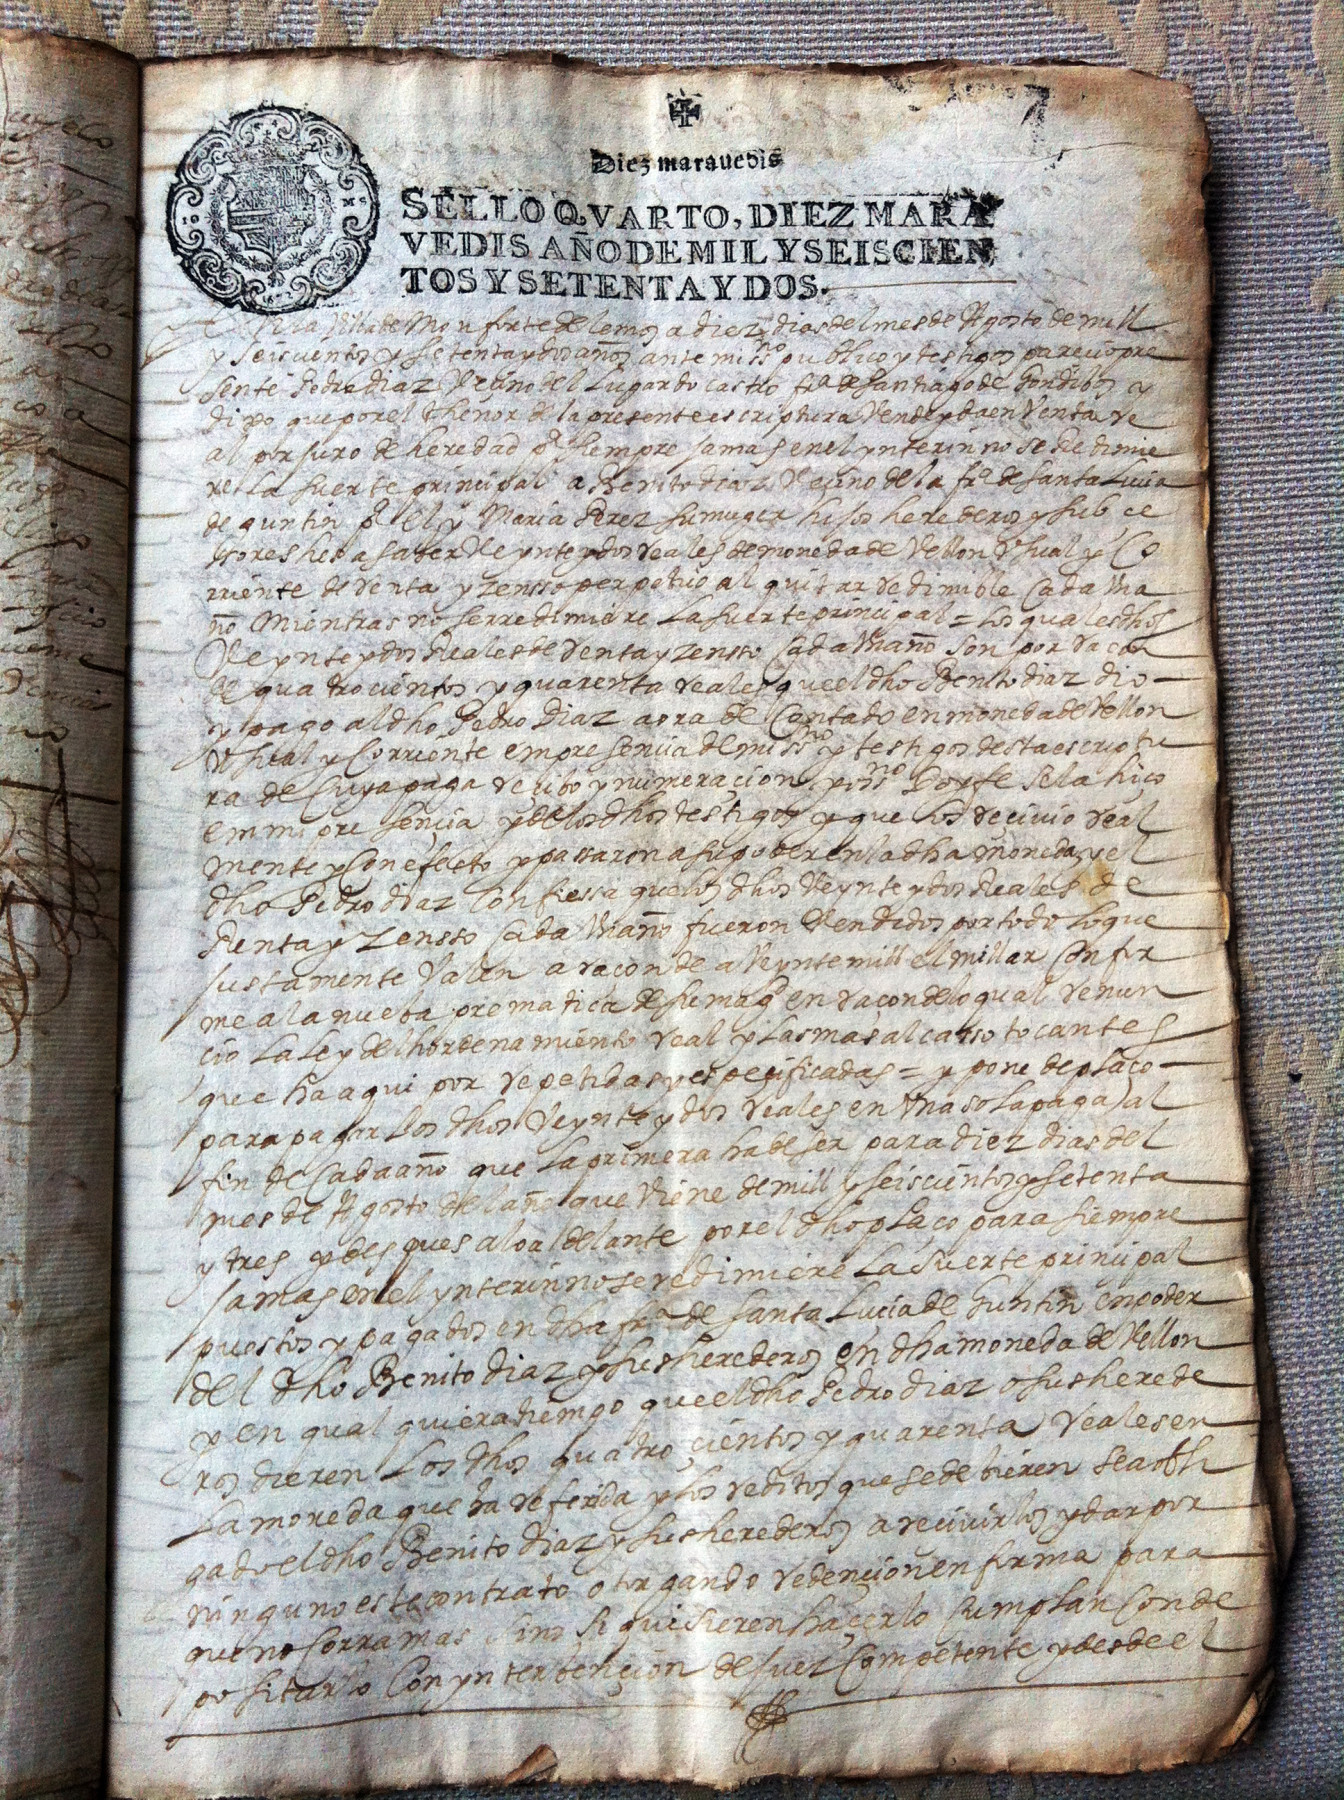 Diez marauedis
SELLO QVARTO, DIEZ MARA
VEDIS AÑO DE MIL Y SEISCIEN
TOS Y SETENTA Y DOS.
En la Villa de Monforte de lemos a diez dias del mes de Agosto de mill
y seiscientos y setenta y dos años ante mi ssno publico y testigos parecio pre
sente Pedro diaz Vecino del Lugar do castro fra de santiago de Gondibos y
dixo que por el thenor de la presente escriptura Vende y da en Venta Re
al por juro de heredad pa siempre jamas en el ynterin no se Redimie
re La suerte principal a Benito diaz Vecino de la fra de santa Lucia
de guntin pa el y Maria Perez su muger hijos herederos y subce
ssores hes a saber Veynte y dos reales de moneda de Vellon Vsual y Co
rriente de renta y zensso perpetuo al quitar redimible Cada Vn a
ño Mientras no se rredimiere La suerte principal = Los quales dhos
Veynte y dos Reales de renta y zensso Cada Vn año son por racon
de quatrocientos y quarenta reales que el dho Benito diaz dio
y pago al dho Pedro Diaz aora de Contado en moneda de Vellon
Vsual y Corriente em presencia de mi ssno y testigos desta escriptu
ra de Cuya paga recibo y numeracion yo ssno Doy fe se la hiço
em mi presencia y de los dhos testigos y que los recivio real
mente y Con efecto y passaron a su poder en la dha moneda y el
dho Pedro diaz Confiessa que los dhos Veynte y dos Reales de
Renta y Zensso Cada Vn año fueron Vendidos por todo lo que
justamente Valen a racon de a Veynte mill el millar Confor
me a la nueba prematica de su magd en racon de lo qual renun
cio La Ley del hordenamiento real y Las mas al casso tocantes
que ha aqui por repetidas y especificadas = y pone de plaço
para pagar Los dhos Veynte y dos reales en Vna sola paga al
fin de Cada año que La primera ha de ser para diez dias del
mes de Agosto del año que Viene de mill y seiscientos y setenta
y tres y des ques al oal delante por el dho plaço para siempre
jamas en el ynterin no se redimiere La suerte principal
puestos y pagados en dha fra de santa Lucia de Guntin en poder
del dho Benito diaz y sus herederos en dha moneda de Vellon
y en qual quiera tiempo que el dho Pedro diaz o sus herede
ros dieren Los dhos quatro cientos y quarenta reales en
La moneda que ha referida y los reditos que se debieren sea obli
gado el dho Benito diaz y sus herederos a recivirlos y dar por
ninguno este contrato otorgando redencion en forma para
que no Corra mas sino si quisieren hacerlo Cumplan Con de
positarlo Con yntervencion de juez Competente y desde el